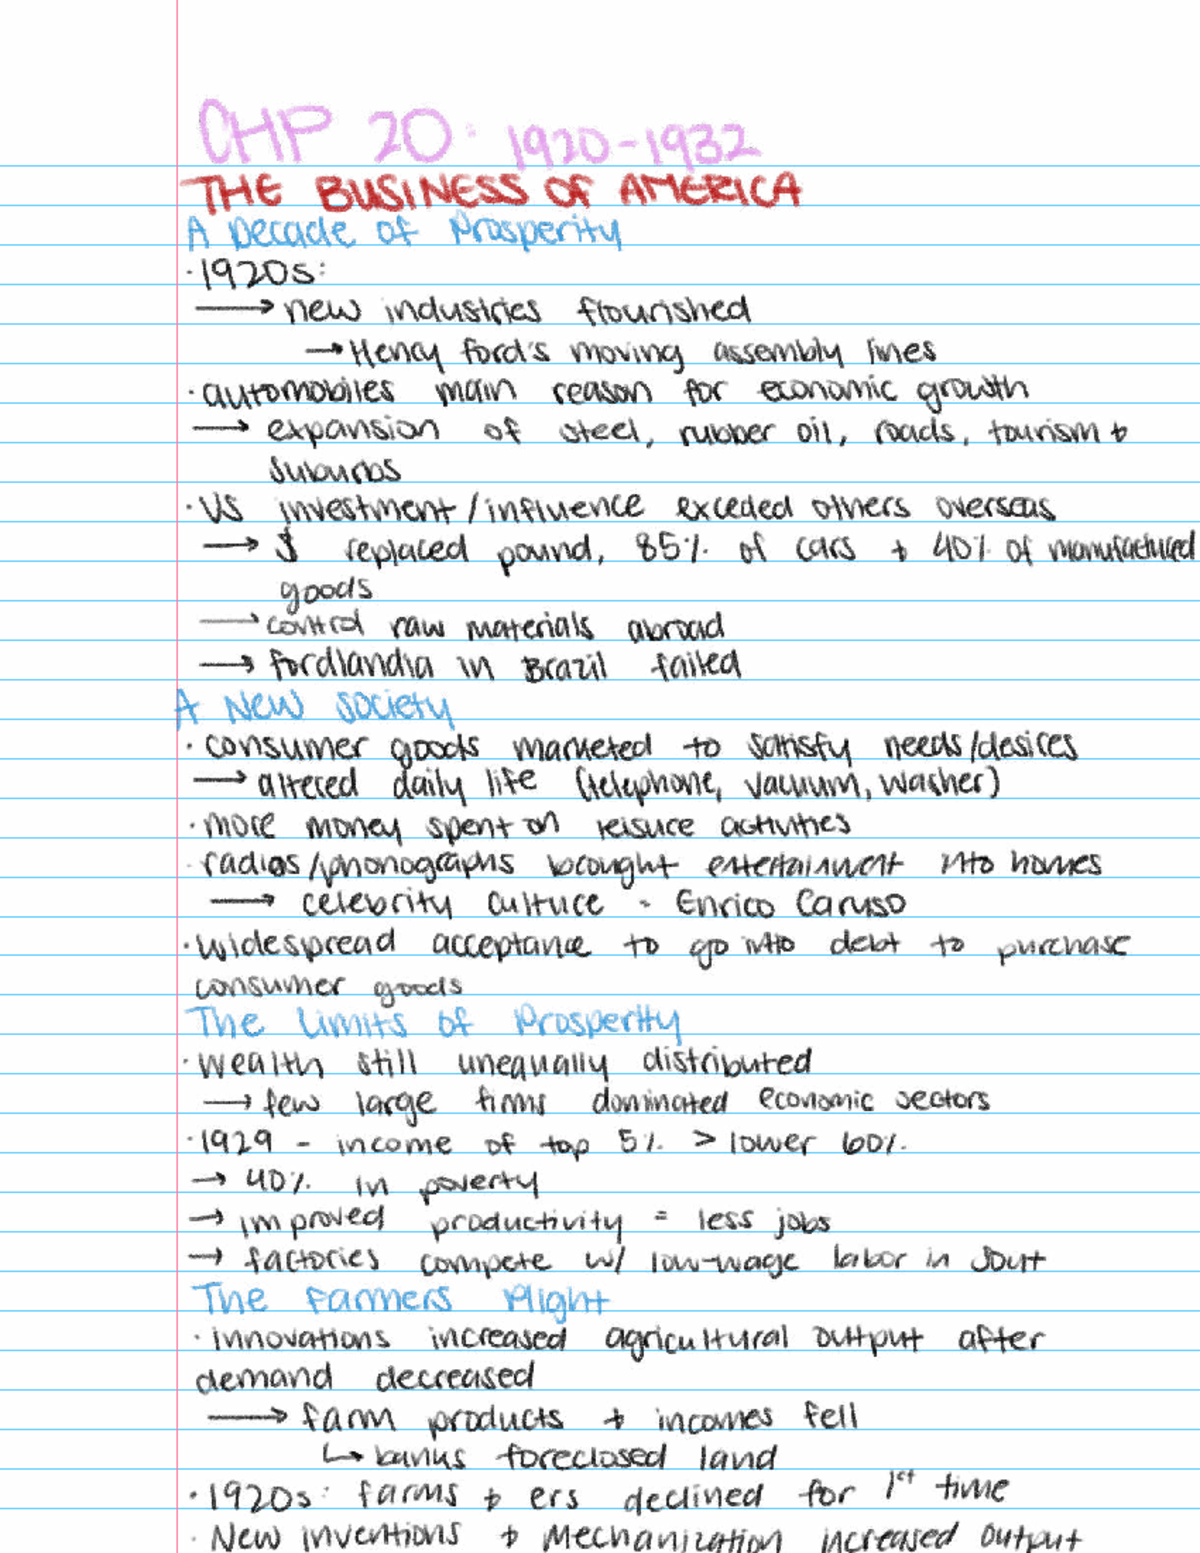 CHP 20: 1920-1932
THE BUSINESS OF AMERICA
A Decade of Prosperity
· 1920s:
→ new industries flourished
→ Henry Ford's moving assembly lines
· automobiles main reason for economic growth
→ expansion of steel, rubber oil, roads, tourism +
suburbs
· US investment/influence exceded others overseas
→ $ replaced pound, 85% of cars + 40% of manufactured
goods
→ control raw materials abroad
→ fordlandia in Brazil failed
A New Society
· consumer goods marketed to satisfy needs/desires
→ altered daily life (telephone, vacuum, washer)
· more money spent on leisure activities
· radios/phonographs brought entertainment into homes
→ celebrity culture - Enrico Caruso
· widespread acceptance to go into debt to purchase
consumer goods
The Limits of Prosperity
· wealth still unequally distributed
→ few large firms dominated economic sectors
· 1929 - income of top 5% > lower 60%
→ 40% in poverty
→ improved productivity = less jobs
→ factories compete w/ low-wage labor in South
The Farmers Plight
· innovations increased agricultural output after
demand decreased
→ farm products + incomes fell
↳ banks foreclosed land
· 1920s: farms + ers declined for 1st time
· New inventions + Mechanization increased output